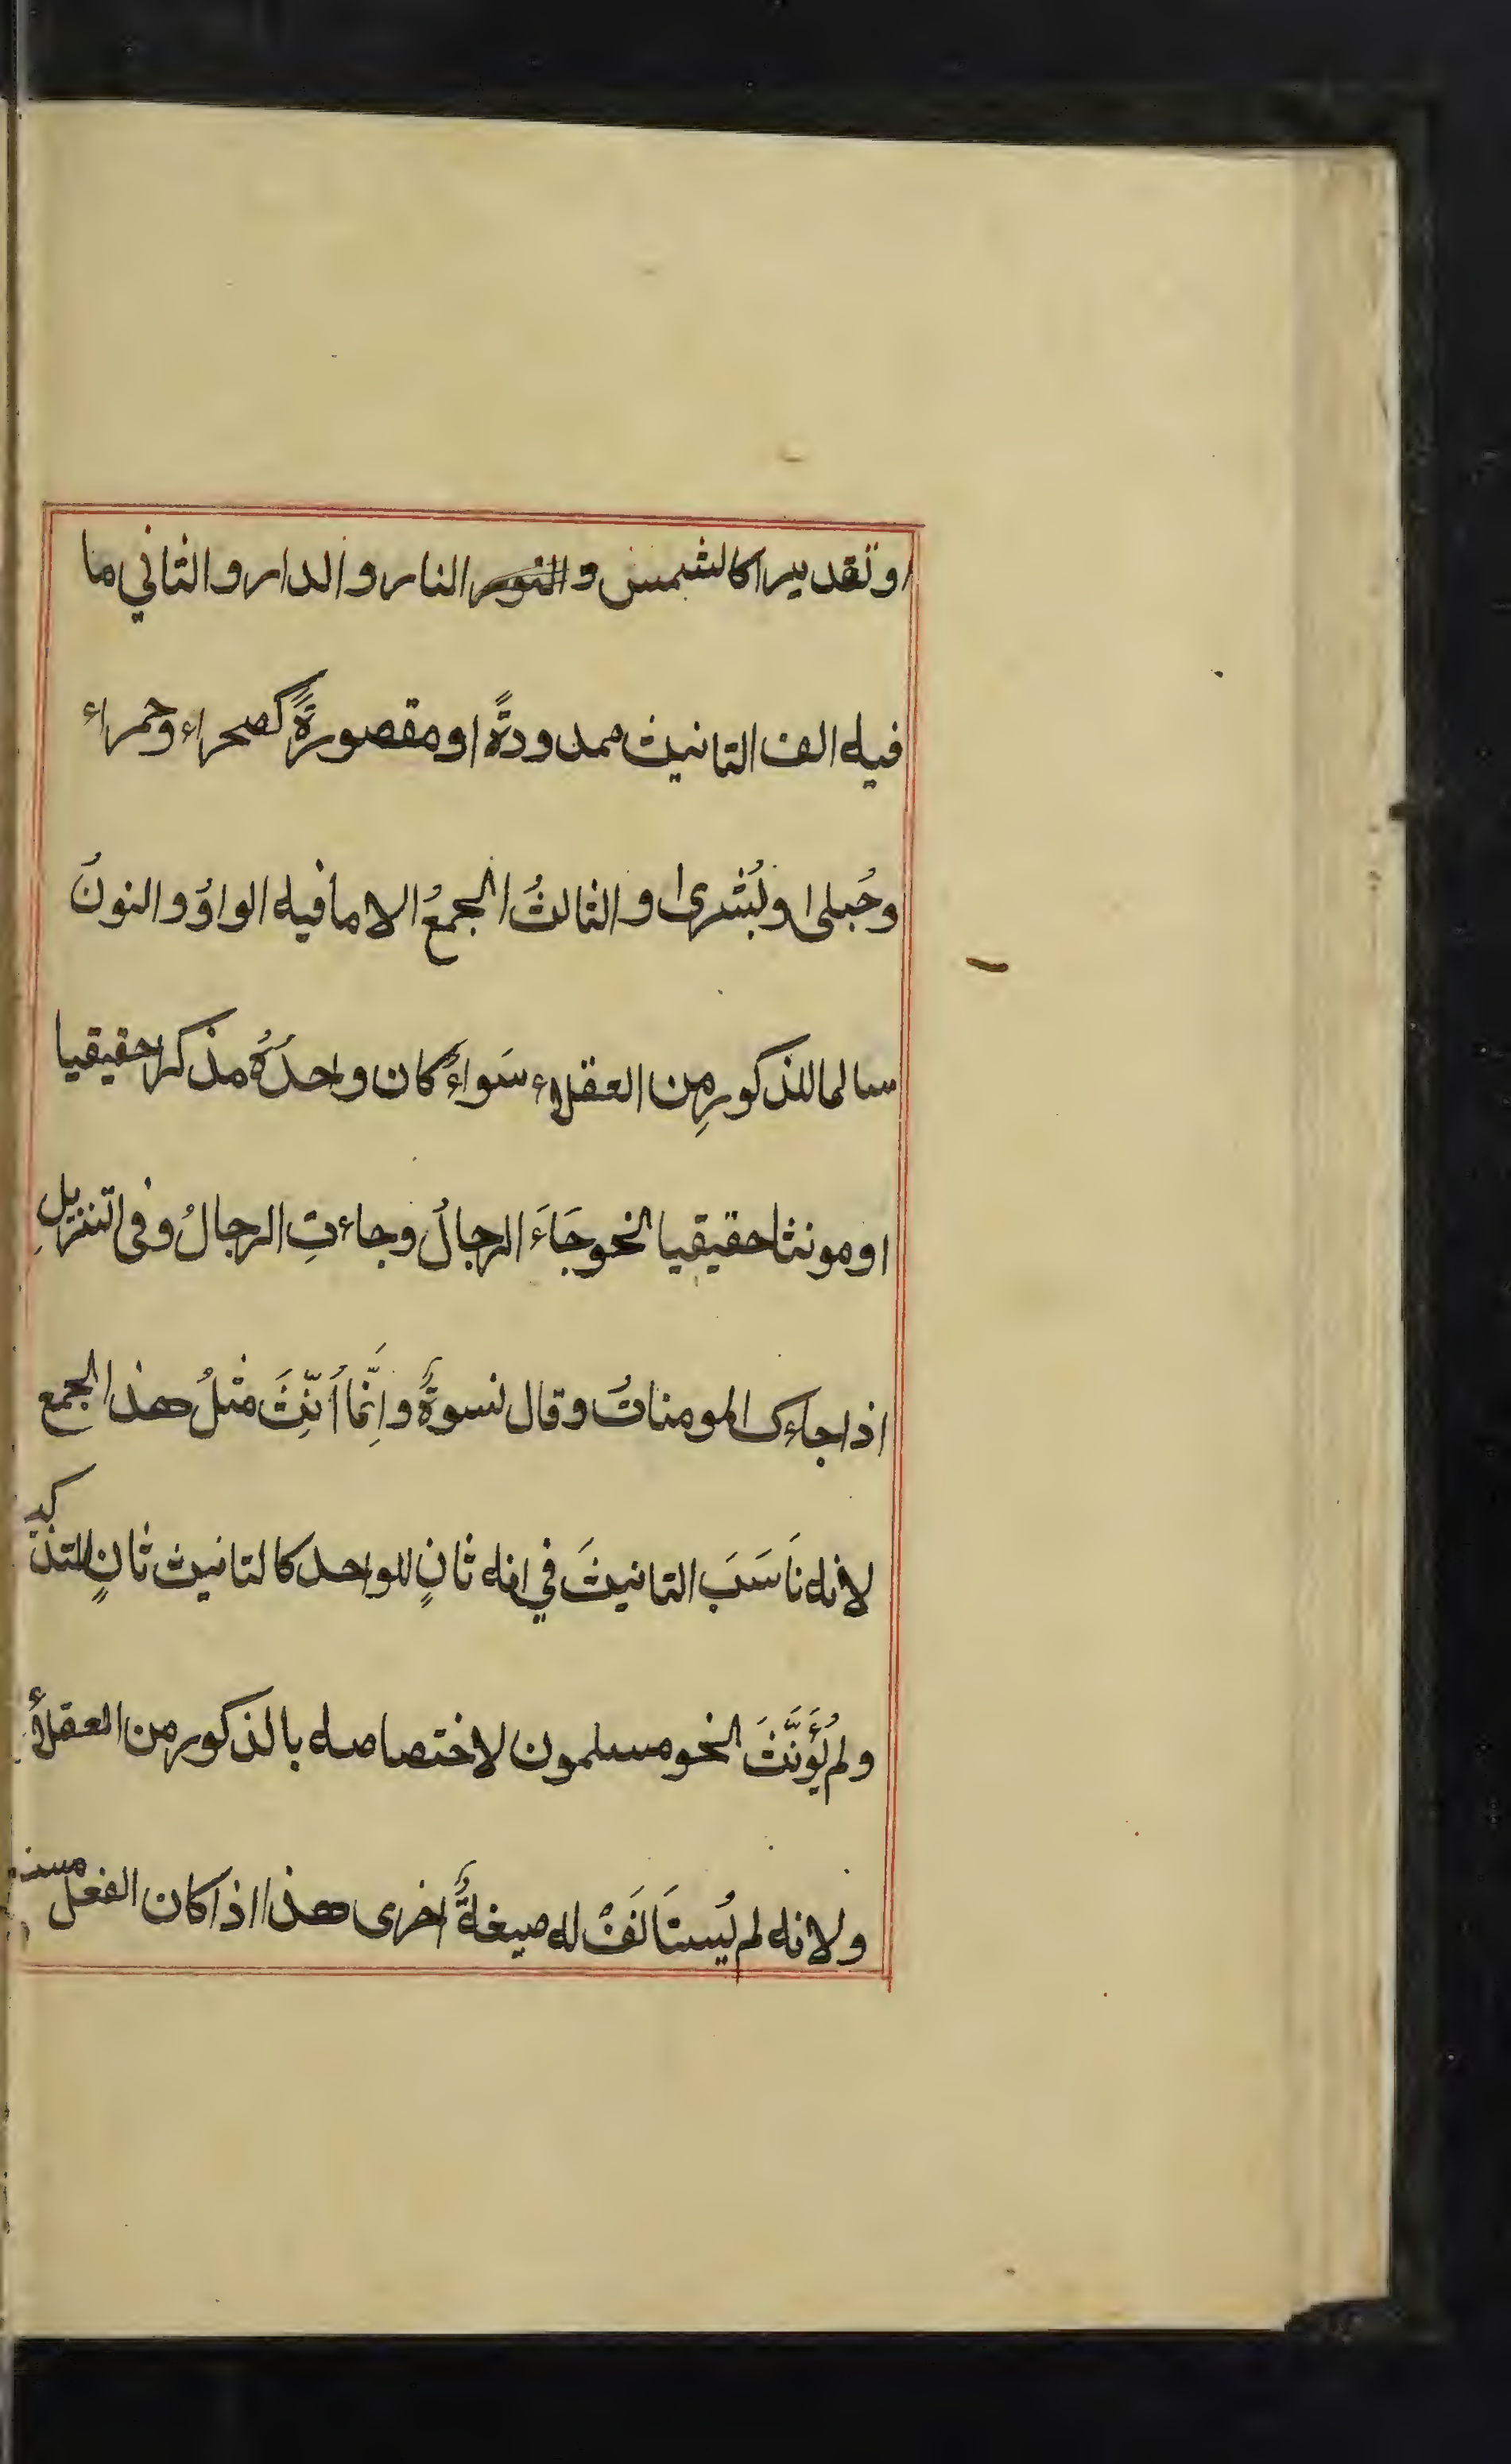 او تقديرا كالشمس و النار والدار والثاني ما
فيه الف التانيث ممدودةً او مقصورةً كصحراء وحمراء
وحُبلى او بُشرى ا والثالثُ الجمعُ الا ما فيه الواوُ والنونُ
سالما للذكورِ من العقلاء سَواءٌ كان واحدُهُ مذكرا حقيقيا
او مونثا حقيقيا نحو جَاءَ الرجالُ وجاءتِ الرجالُ وفى التنزيلِ
اذا جاءك المومناتُ وقال نسوةٌ وإنّما أنِّثَ مثلُ هذا الجمع
لانه نَاسَبَ التانيثَ في انه ثانٍ للواحد كالتانيث ثانٍ للتذكير
ولم يُؤَنَّثَ نحو مسلمون لاختصاصه بالذكور من العقلاءِ
ولانه لم يُستَالَفْ له صيغةٌ اخرى هذا اذا كان الفعل